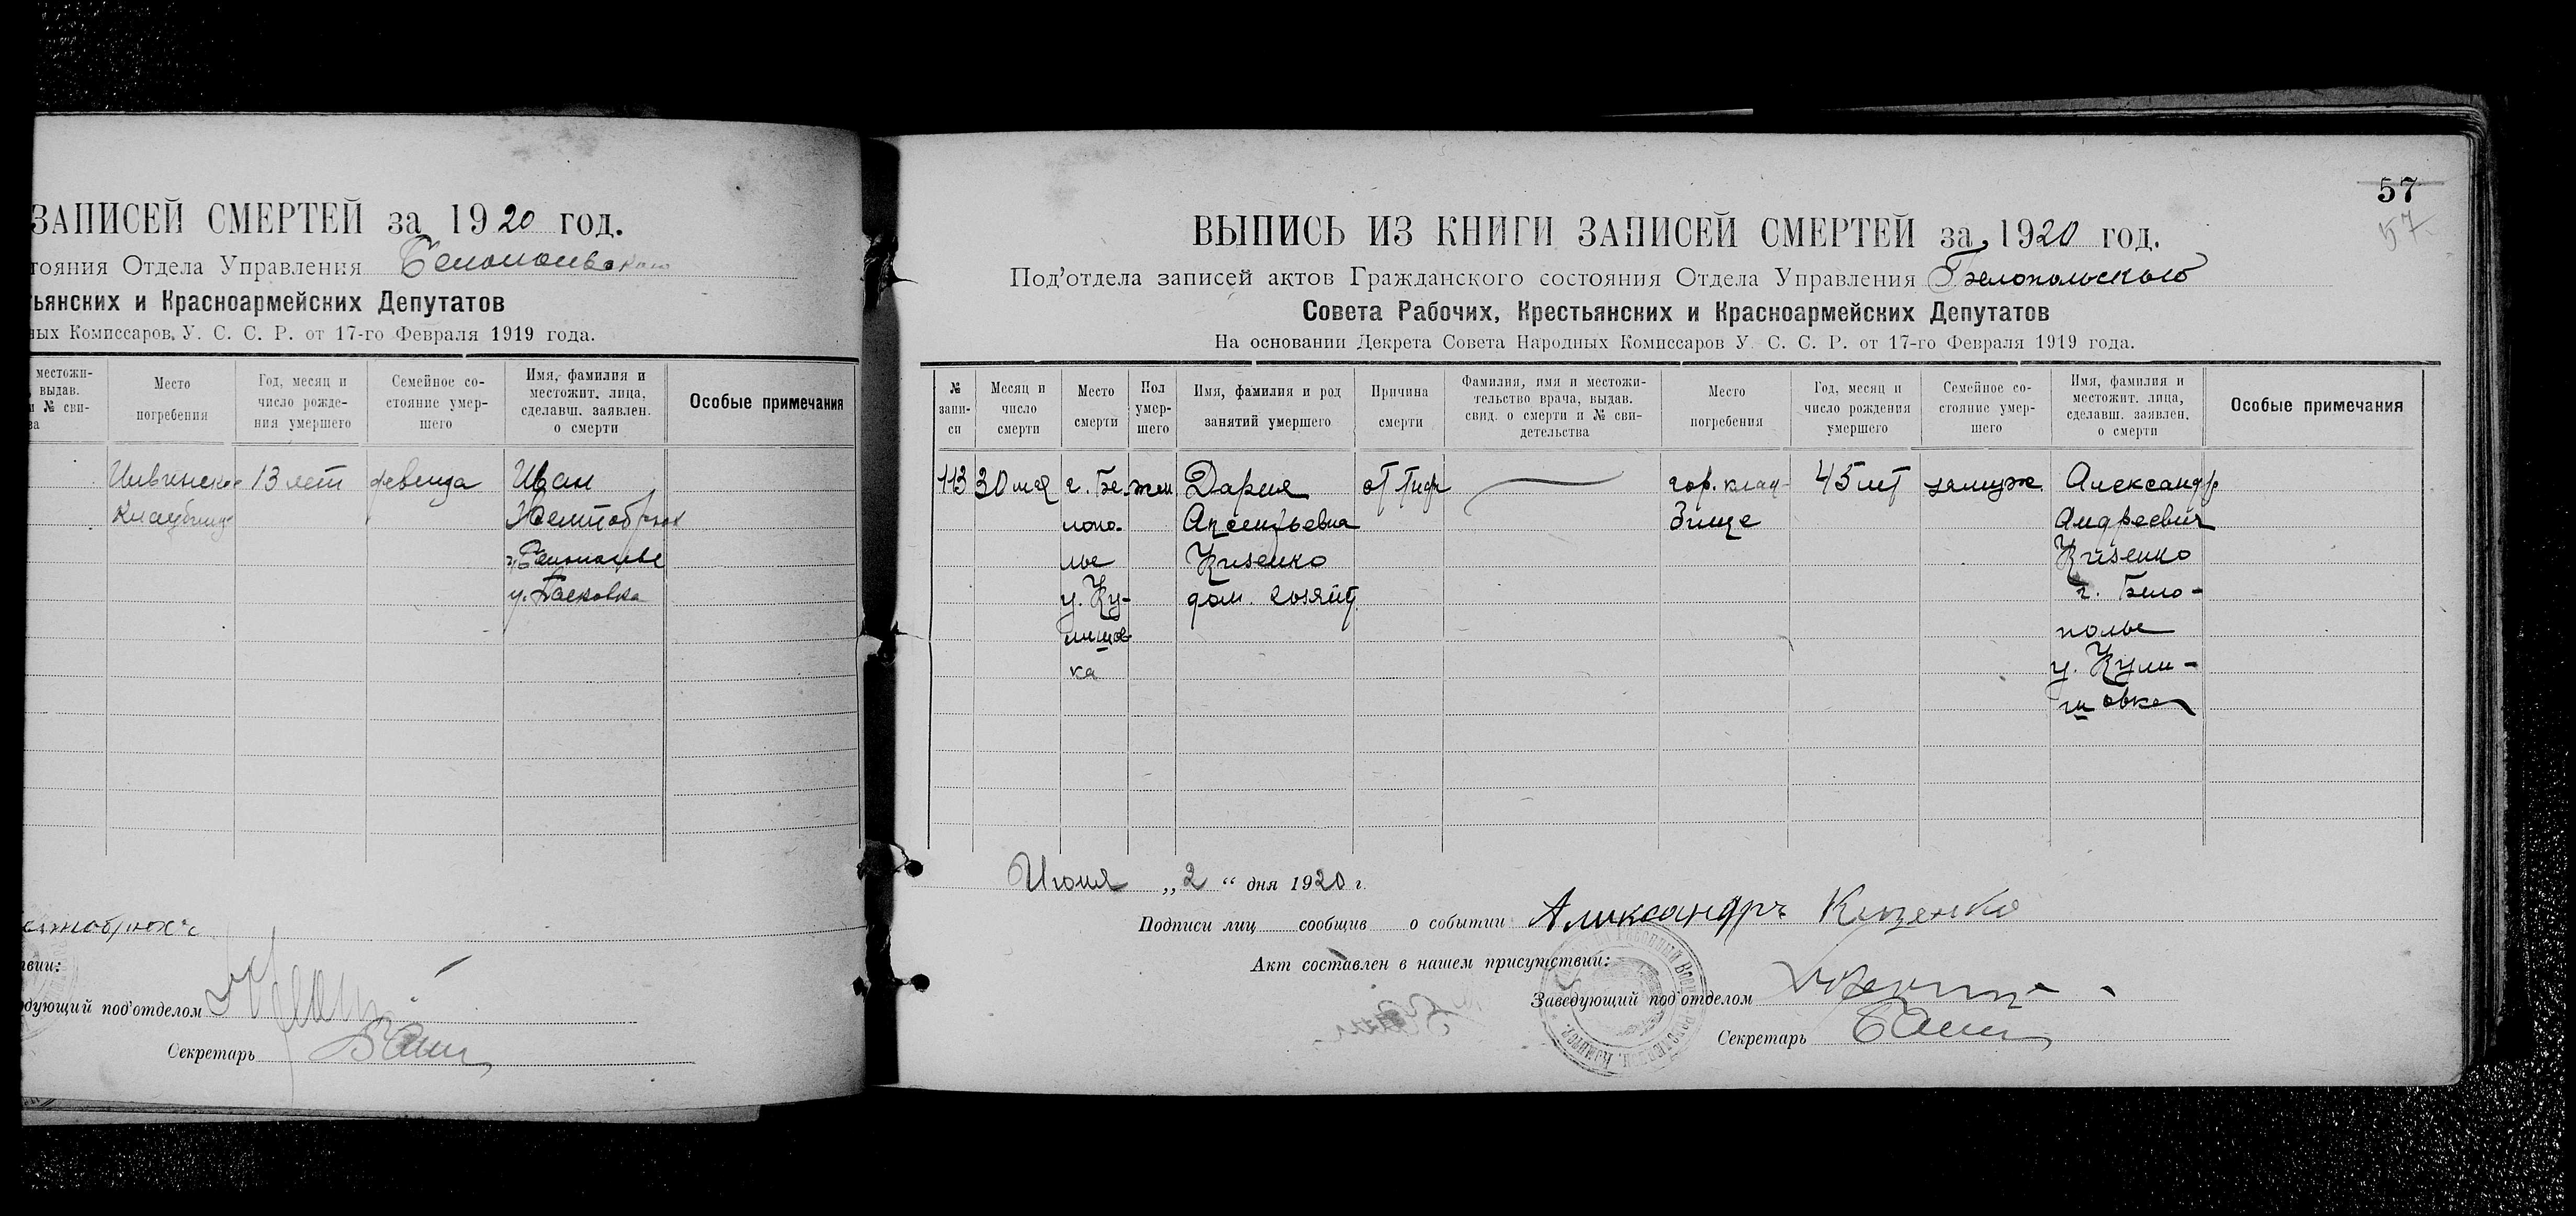 ЗАПИСЕЙ СМЕРТЕЙ за 1920 год.
тояния Отдела Управления
ьянских и Красноармейских Депутатов
ных Комиссаров, У. С. С. Р. от 17-го Февраля 1919 года.
местожи-
выдав.
№ сви-
ва
Место
погребения
Год, месяц и
число рожде-
ния умершего
Семейное со-
стояние умер-
шего
Имя, фамилия и
местожит. лица,
сделавш. заявлен.
о смерти
Особые примечания
13 лет
девица
Иван
у. Басковка
твии:
дующий под'отделом
Секретарь
57
57
ВЫПИСЬ ИЗ КНИГИ ЗАПИСЕЙ СМЕРТЕЙ за 1920 год.
Под'отдела записей актов Гражданского состояния Отдела Управления Белопольского
Совета Рабочих, Крестьянских и Красноармейских Депутатов
На основании Декрета Совета Народных Комиссаров У. С. С. Р. от 17-го Февраля 1919 года.
№
запи-
си
Месяц и
число
смерти
Место
смерти
Пол
умер-
шего
Имя, фамилия и род
занятий умершего
Причина
смерти
Фамилия, имя и местожи-
тельство врача, выдав.
свид. о смерти и № сви-
детельства
Место
погребения
Год, месяц и
число рождения
умершего
Семейное со-
стояние умер-
шего
Имя, фамилия и
местожит. лица,
сделавш. заявлен.
о смерти
Особые примечания
113
30 мая
г. Бе-
лопо-
лье
у. Ку-
лишов-
ка
жен
Дария
Арсентьевна
Кизенко
дом. хозяйст.
от тиф
гор. клад-
бище
45 лет
замуж
Александр
Андреевич
Кизенко
г. Бело-
полье
у. Кули-
шовка
Июня „2“ дня 1920 г.
Подписи лиц сообщив о событии: Александръ Кизенко
Акт составлен в нашем присутствии:
Заведующий под'отделом
Секретарь